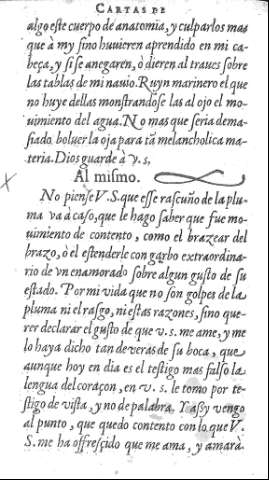 CARTAS DE
algo este cuerpo de anatomia, y culparlos mas
que à my sino huuieren aprendido en mi ca-
beça, y si se anegaren, ò dieren al traues sobre
las tablas de mi nauio. Ruyn marinero el que
no huye dellas monstrandose las al ojo el mo-
uimiento del agua. No mas que seria dema-
siado boluer la oja para tã melancholica ma-
teria. Dios guarde à v. s,
Al mismo.
No piense V. S. que esse rascuño de la plu-
ma va à caso, que le hago saber que fue mo-
uimiento de contento, como el braзear del
brazo, ò el estenderle con garbo extraordina-
rio de vn enamorado sobre algun gusto de su
estado. Por mi vida que no son golpes de la
pluma ni el rasgo, ni estas razones, sino que-
rer declarar el gusto de que v. s. me ame, y me
lo haya dicho tan de veras de su boca, que
aunque hoy en dia es el testigo mas falso la
lengua del coraçon, en v. s. le tomo por te-
stigo de vista, y no de palabra. Y assy vengo
al punto, que quedo contento con lo que V.
S. me ha offrescido que me ama, y amarà